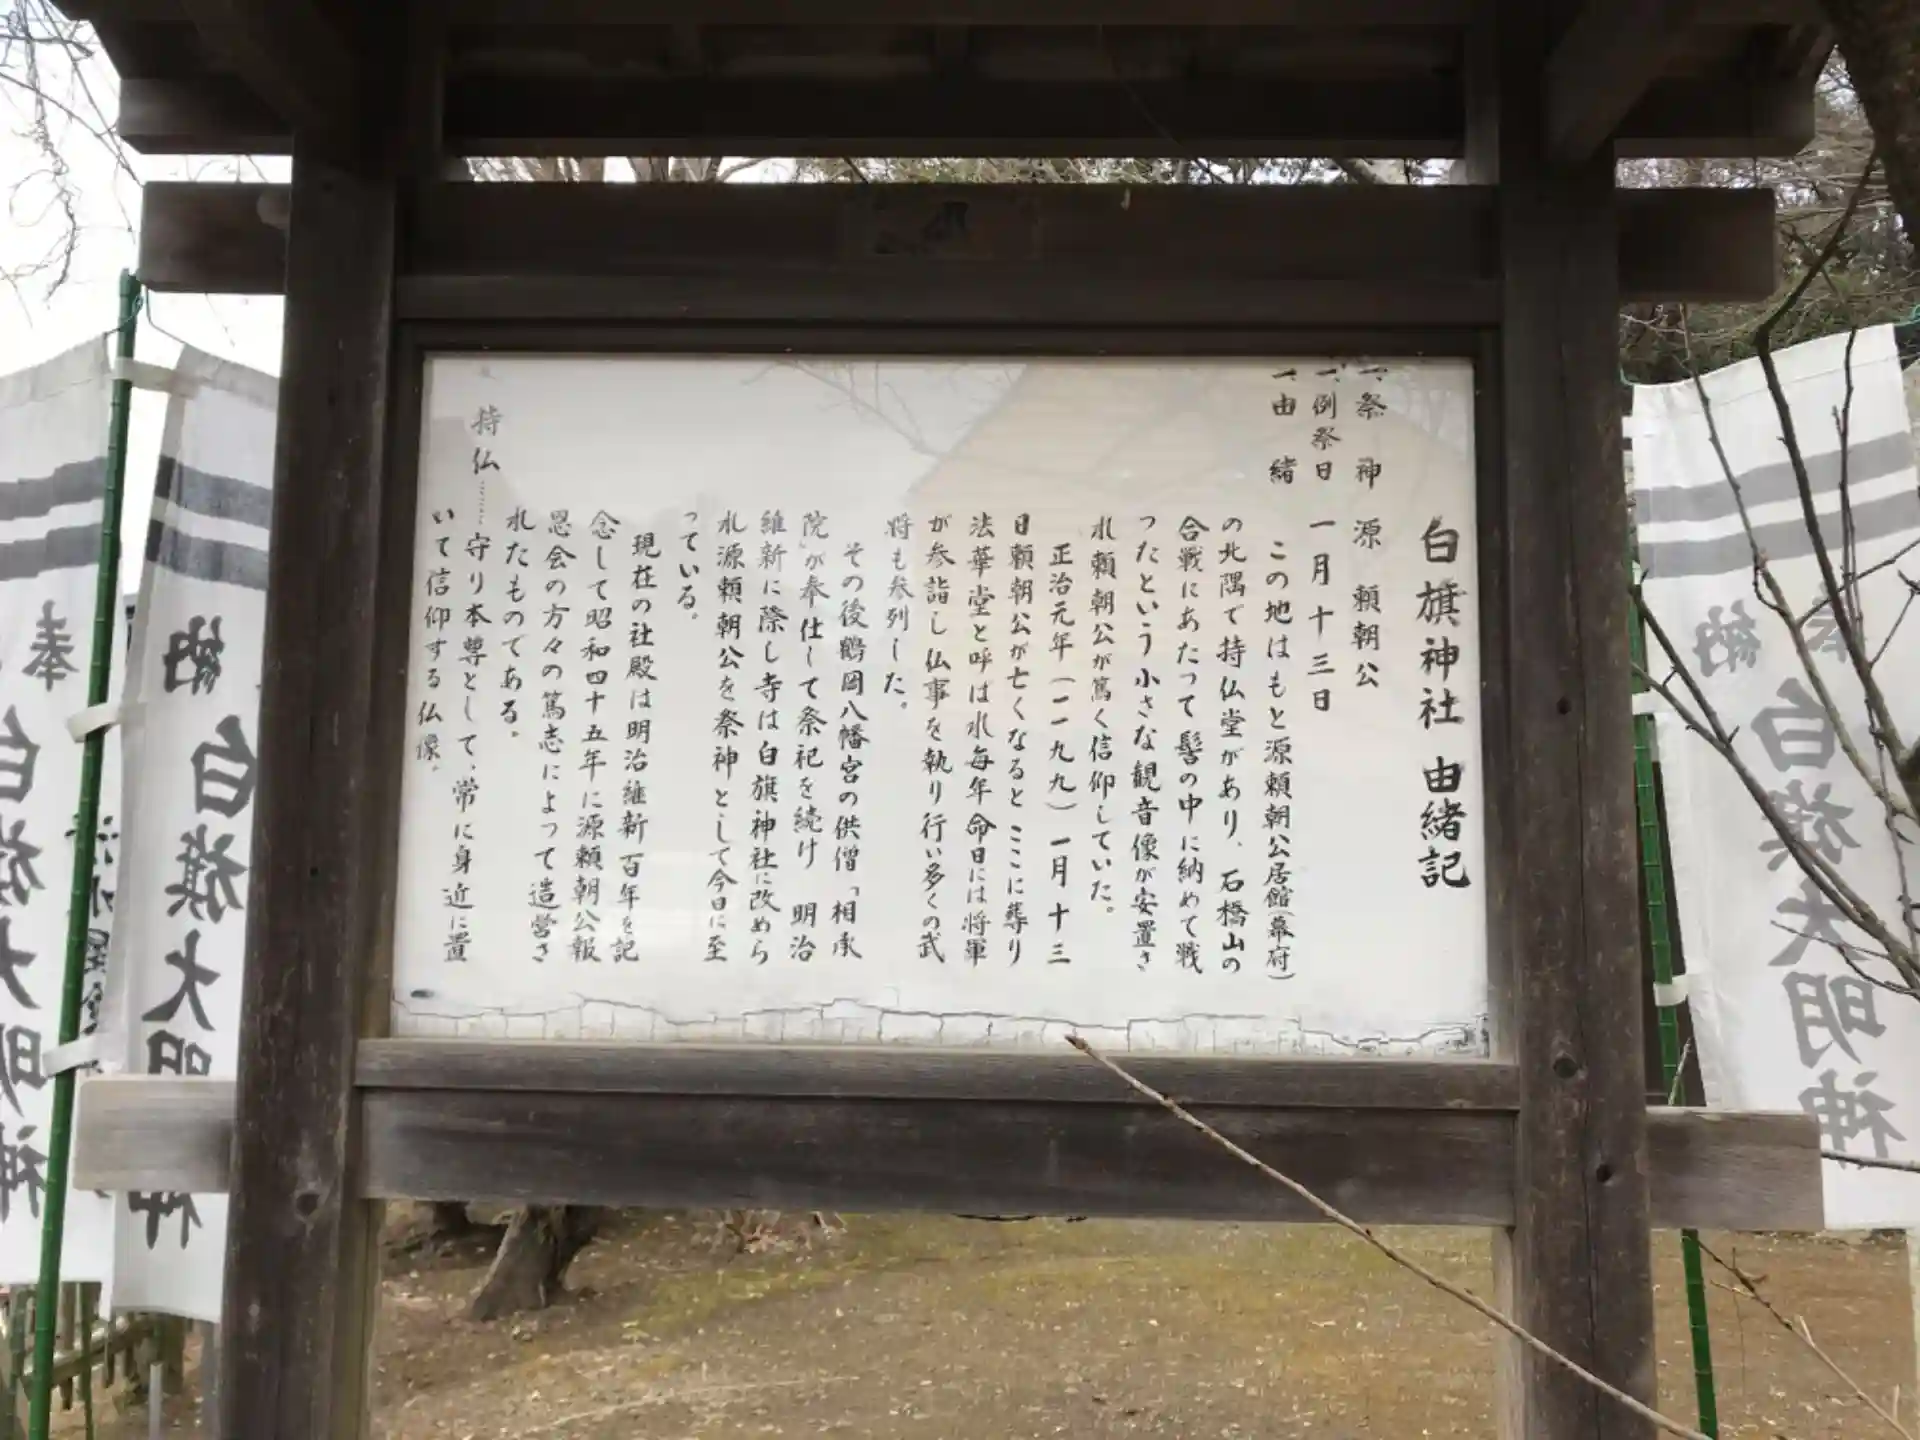 白旗神社 由緒記
一、祭 神 源 頼朝公
一、例祭日 一月十三日
一、由 緒
この地はもと源頼朝公居館(幕府)
の北隅で持仏堂があり、石橋山の
合戦にあたって髻の中に納めて戦
ったという小さな観音像が安置さ
れ頼朝公が篤く信仰していた。
正治元年(一一九九)一月十三
日頼朝公が亡くなるとここに葬り
法華堂と呼ばれ毎年命日には将軍
が参詣し仏事を執り行い多くの武
将も参列した。
その後鶴岡八幡宮の供僧「相承
院」が奉仕して祭祀を続け 明治
維新に際し寺は白旗神社に改めら
れ源頼朝公を祭神として今日に至
っている。
現在の社殿は明治維新百年を記
念して昭和四十五年に源頼朝公報
恩会の方々の篤志によって造営さ
れたものである。
持仏……守り本尊として、常に身近に置
いて信仰する仏像。
奉
白旗大明神
納
白旗大明神
奉
納
白旗大明神